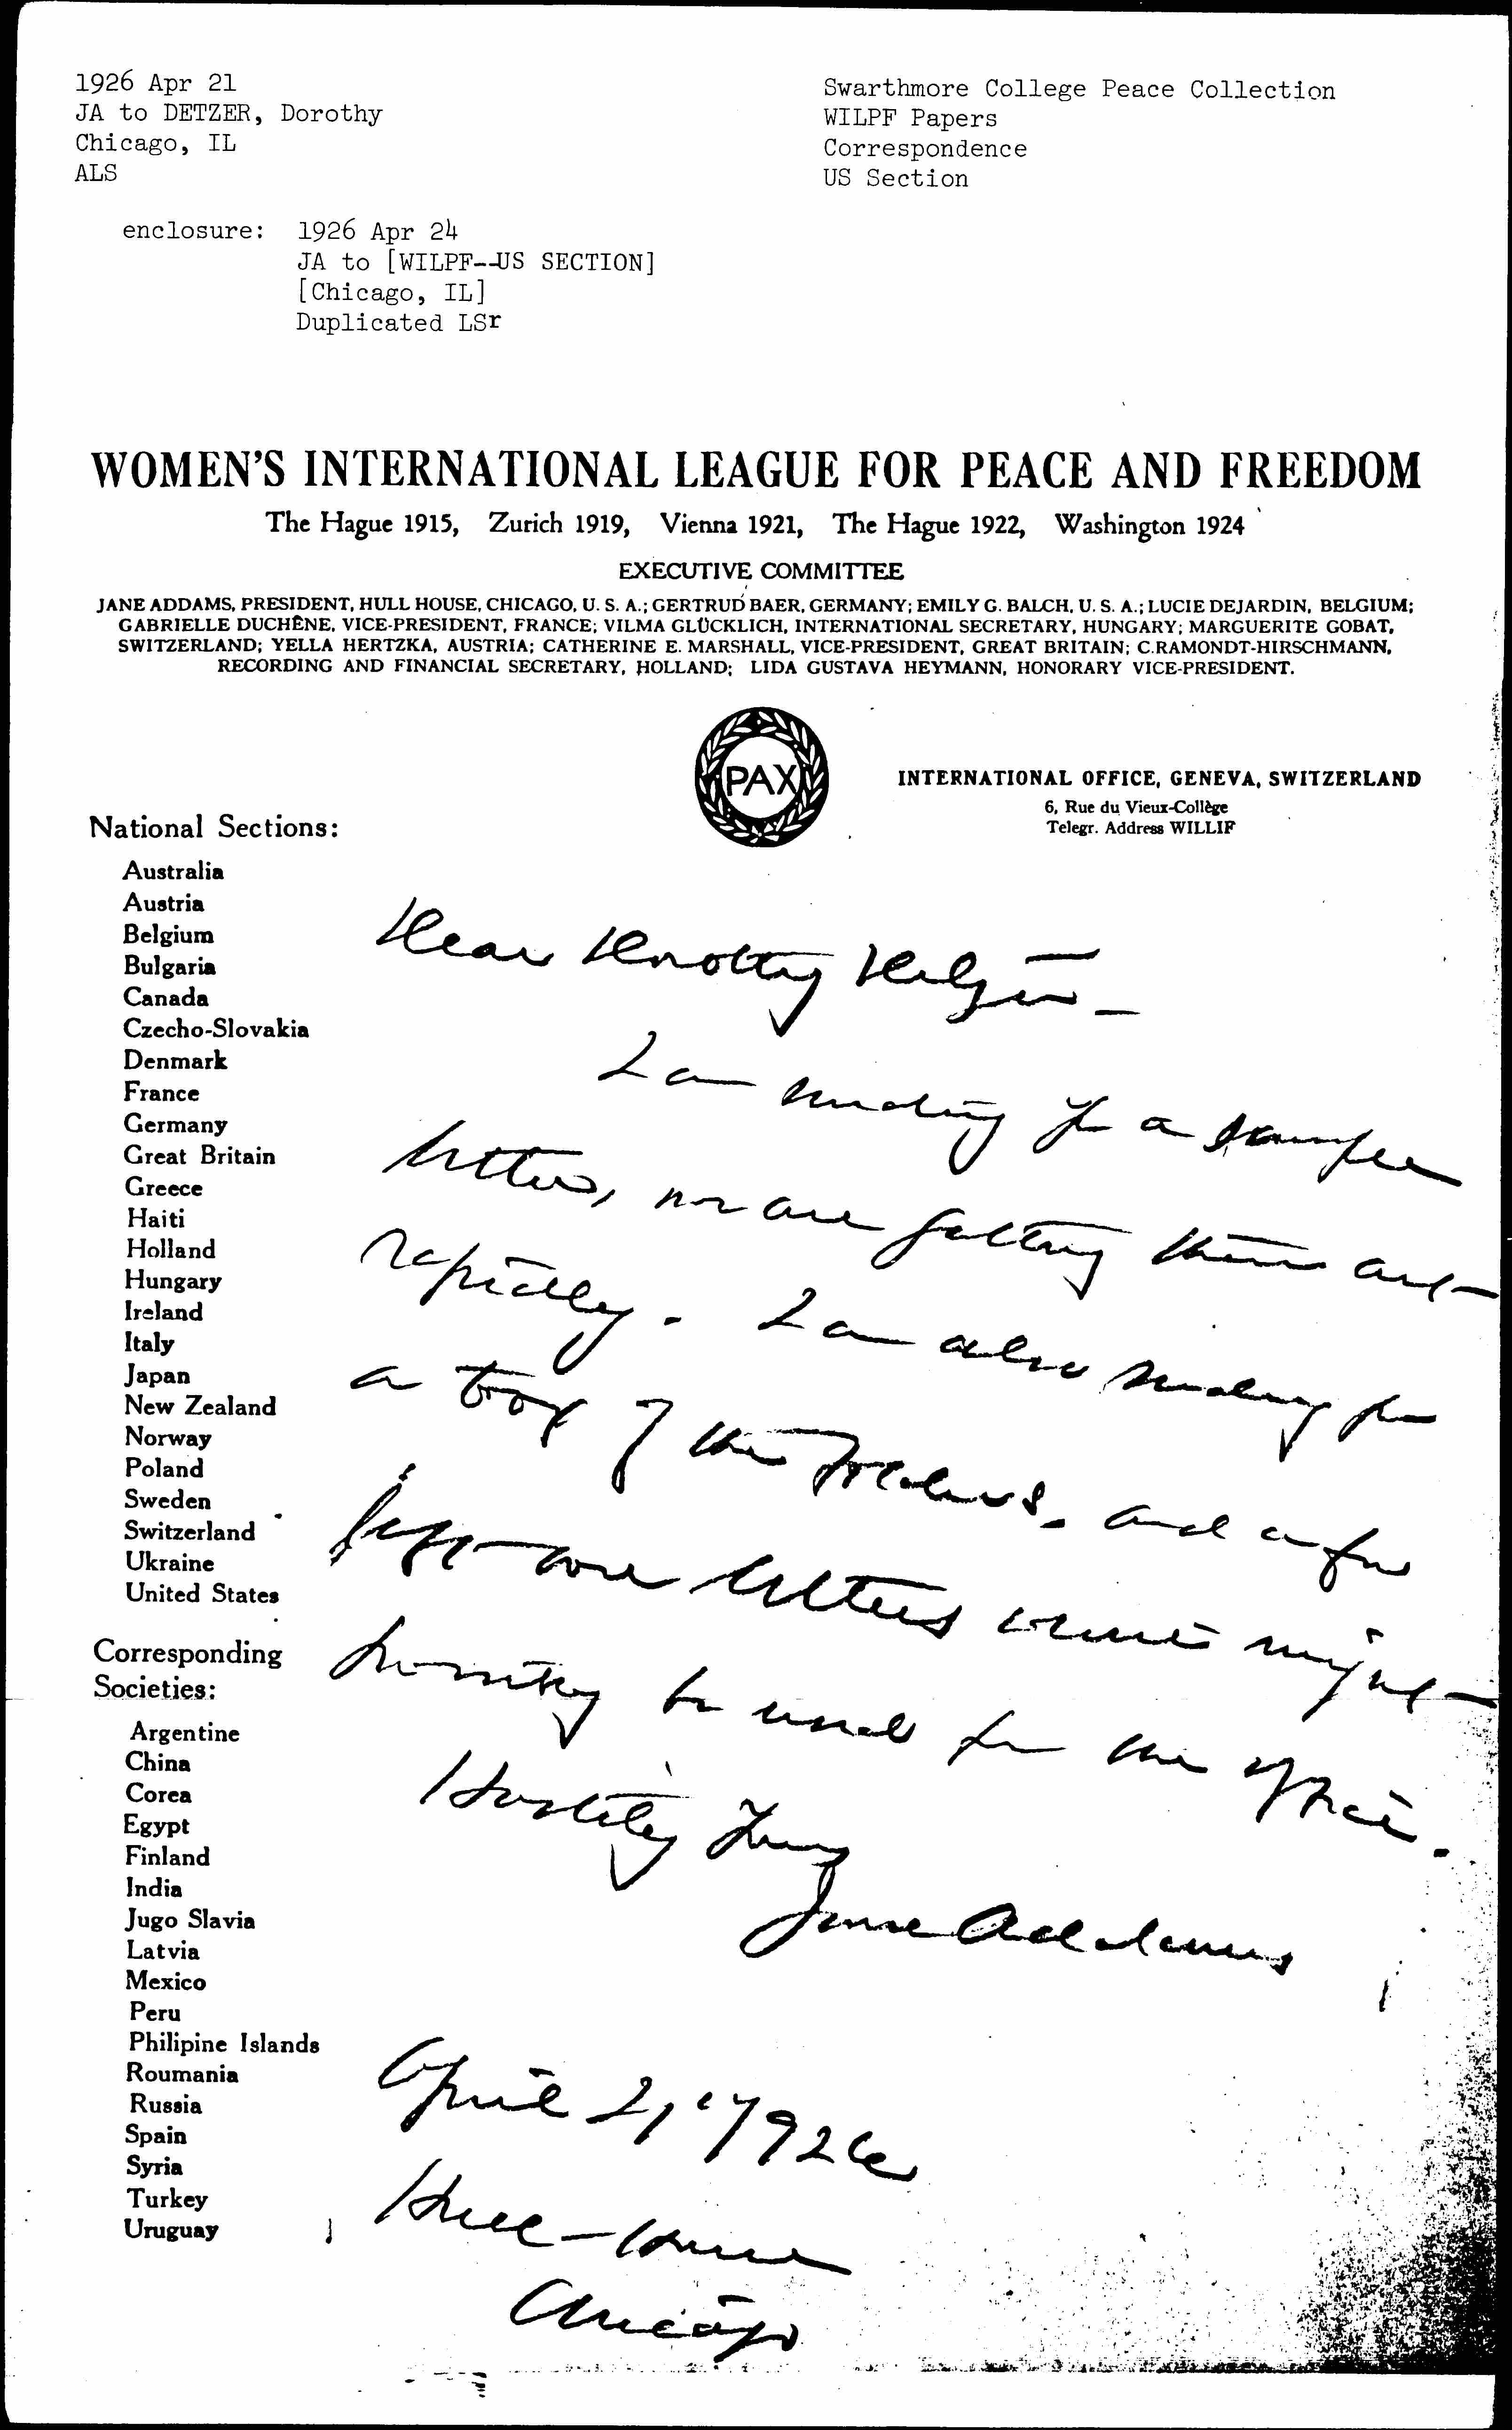 1926 Apr 21
JA to DETZER, Dorothy
Chicago, IL
ALS
enclosure: 1926 Apr 24
JA to [WILPF--US SECTION]
[Chicago, IL]
Duplicated LSr
Swarthmore College Peace Collection
WILPF Papers
Correspondence
US Section
WOMEN'S INTERNATIONAL LEAGUE FOR PEACE AND FREEDOM
The Hague 1915, Zurich 1919, Vienna 1921, The Hague 1922, Washington 1924
EXECUTIVE COMMITTEE
JANE ADDAMS, PRESIDENT, HULL HOUSE, CHICAGO, U. S. A.; GERTRUD BAER, GERMANY; EMILY G. BALCH, U. S. A.; LUCIE DEJARDIN, BELGIUM;
GABRIELLE DUCHÊNE, VICE-PRESIDENT, FRANCE; VILMA GLÜCKLICH, INTERNATIONAL SECRETARY, HUNGARY; MARGUERITE GOBAT,
SWITZERLAND; YELLA HERTZKA, AUSTRIA; CATHERINE E. MARSHALL, VICE-PRESIDENT, GREAT BRITAIN; C.RAMONDT-HIRSCHMANN,
RECORDING AND FINANCIAL SECRETARY, HOLLAND; LIDA GUSTAVA HEYMANN, HONORARY VICE-PRESIDENT.
PAX
INTERNATIONAL OFFICE, GENEVA, SWITZERLAND
6, Rue du Vieux-Collège
Telegr. Address WILLIF
National Sections:
Australia
Austria
Belgium
Bulgaria
Canada
Czecho-Slovakia
Denmark
France
Germany
Great Britain
Greece
Haiti
Holland
Hungary
Ireland
Italy
Japan
New Zealand
Norway
Poland
Sweden
Switzerland
Ukraine
United States
Corresponding
Societies:
Argentine
China
Corea
Egypt
Finland
India
Jugo Slavia
Latvia
Mexico
Peru
Philipine Islands
Roumania
Russia
Spain
Syria
Turkey
Uruguay
Dear Dorothy Detzer—
I am sending you a sample
letter, we are getting them out
rapidly. I am also sending you
a box of the folders, and a few
letters which might
possibly be used for the office.
Hastily yours
Jane Addams
April 21" 1926
Hull-House
Chicago